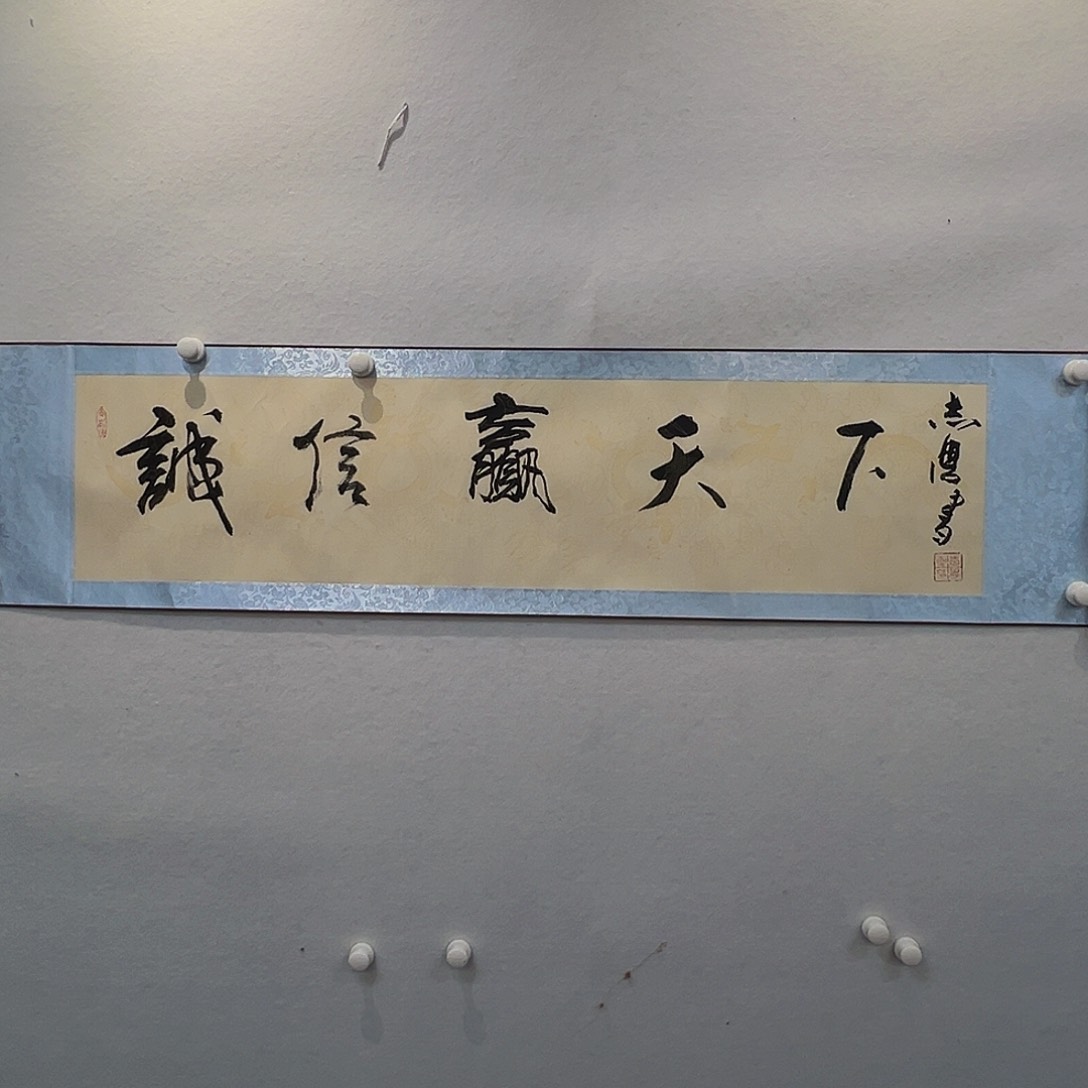 誠信贏天下
志遠書